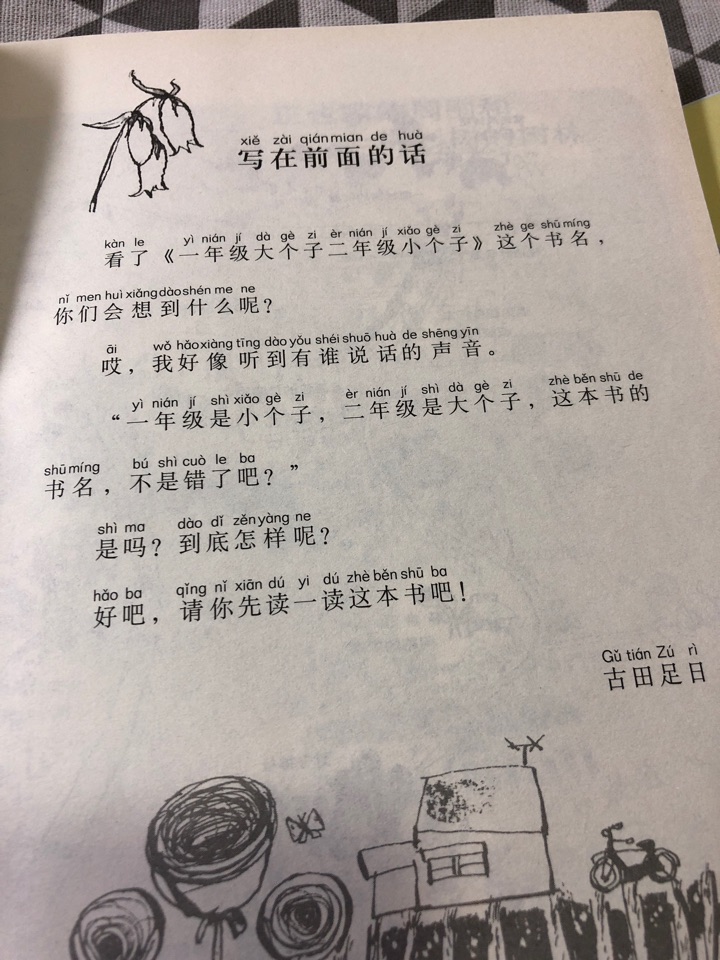 xiě zài qián mian de huà
写在前面的话
kàn le yì nián jí dà gè zi èr nián jí xiǎo gè zi zhè ge shū míng
看了《一年级大个子二年级小个子》这个书名，
nǐ men huì xiǎng dào shén me ne
你们会想到什么呢？
āi wǒ hǎo xiàng tīng dào yǒu shéi shuō huà de shēng yīn
哎，我好像听到有谁说话的声音。
yì nián jí shì xiǎo gè zi èr nián jí shì dà gè zi zhè běn shū de
“一年级是小个子，二年级是大个子，这本书的
shū míng bú shì cuò le ba
书名，不是错了吧？”
shì ma dào dǐ zěn yàng ne
是吗？到底怎样呢？
hǎo ba qǐng nǐ xiān dú yi dú zhè běn shū ba
好吧，请你先读一读这本书吧！
Gǔ tián Zú rì
古田足日